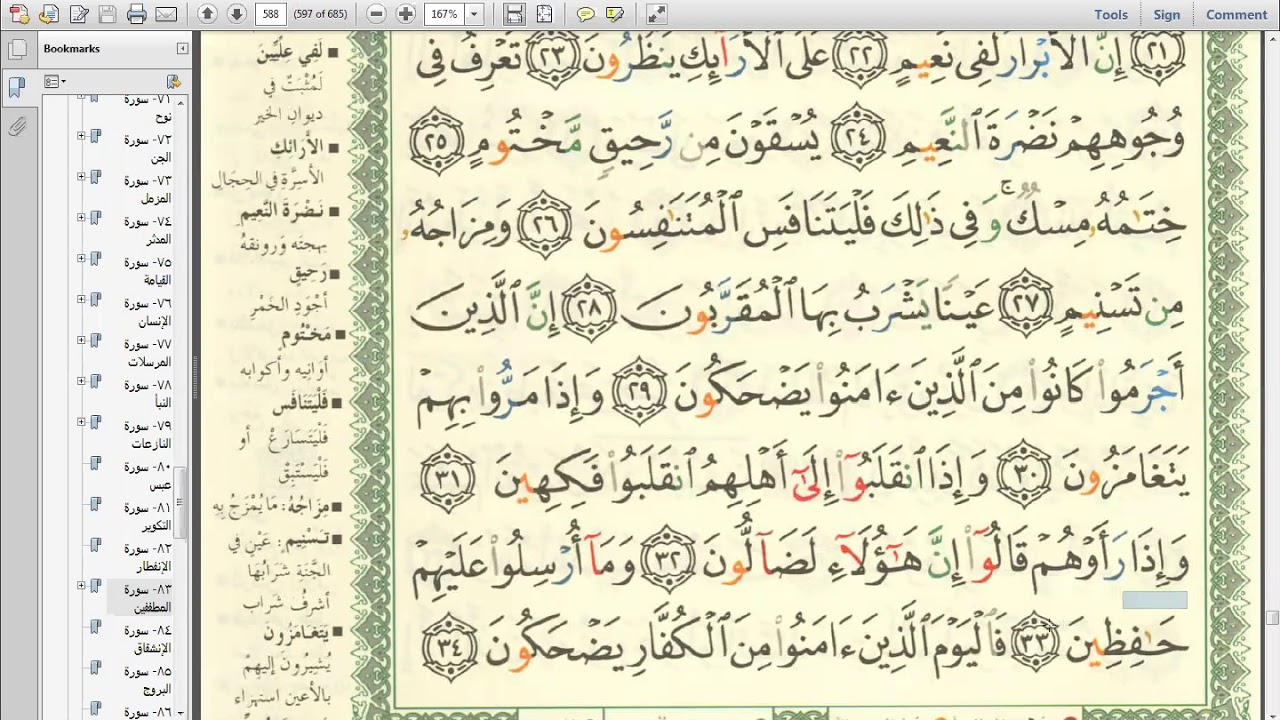 588
(597 of 685)
167%
Tools
Sign
Comment
Bookmarks
٧١- سورة
نوح
٧٢- سورة
الجن
٧٣- سورة
المزمل
٧٤- سورة
المدثر
٧٥- سورة
القيامة
٧٦- سورة
الإنسان
٧٧- سورة
المرسلات
٧٨- سورة
النبأ
٧٩- سورة
النازعات
٨٠- سورة
عبس
٨١- سورة
التكوير
٨٢- سورة
الإنفطار
٨٣- سورة
المطففين
٨٤- سورة
الإنشقاق
٨٥- سورة
البروج
٨٦- سورة
٢١ إِنَّ الْأَبْرَارَ لَفِى نَعِيمٍ ٢٢ عَلَى الْأَرَآئِكِ يَنظُرُونَ ٢٣ تَعْرِفُ فِى
وُجُوهِهِمْ نَضْرَةَ ٱلنَّعِيمِ ٢٤ يُسْقَوْنَ مِن رَّحِيقٍ مَّخْتُومٍ ٢٥
خِتَٰمُهُۥ مِسْكٌ ۚ وَفِى ذَٰلِكَ فَلْيَتَنَافَسِ ٱلْمُتَنَٰفِسُونَ ٢٦ وَمِزَاجُهُۥ
مِن تَسْنِيمٍ ٢٧ عَيْنًا يَشْرَبُ بِهَا ٱلْمُقَرَّبُونَ ٢٨ إِنَّ ٱلَّذِينَ
أَجْرَمُوا۟ كَانُوا۟ مِنَ ٱلَّذِينَ ءَامَنُوا۟ يَضْحَكُونَ ٢٩ وَإِذَا مَرُّوا۟ بِهِمْ
يَتَغَامَزُونَ ٣٠ وَإِذَا ٱنقَلَبُوٓا۟ إِلَىٰٓ أَهْلِهِمُ ٱنقَلَبُوا۟ فَكِهِينَ ٣١
وَإِذَا رَأَوْهُمْ قَالُوٓا۟ إِنَّ هَٰٓؤُلَآءِ لَضَآلُّونَ ٣٢ وَمَآ أُرْسِلُوا۟ عَلَيْهِمْ
حَٰفِظِينَ ٣٣ فَٱلْيَوْمَ ٱلَّذِينَ ءَامَنُوا۟ مِنَ ٱلْكُفَّارِ يَضْحَكُونَ ٣٤
لَفِي عِلِّيِّينَ
لَمُثْبَتٌ فِي
ديوانِ الخَيرِ
الأَرَائِكِ
الأَسِرَّةِ فِي الحِجَالِ
نَضْرَةَ النَّعِيمِ
بهجتَه وَرونقَهُ
رَحِيقٍ
أَجْوَدِ الخَمْرِ
مَخْتُومٍ
أوانيه وأكوابه
فَلْيَتَنَافَسِ
فَلْيَتَسارَعْ أو
فَلْيَسْتَبِقْ
مِزَاجُهُ: مَا يُمْزَجُ بِهِ
تَسْنِيمٍ: عَيْنٍ فِي
الجَنَّةِ شَرَابُهَا
أشرَفُ شَرَاب
يَتَغَامَزُونَ
يُشيرُونَ إليهِمْ
بالأعينِ استهزاء